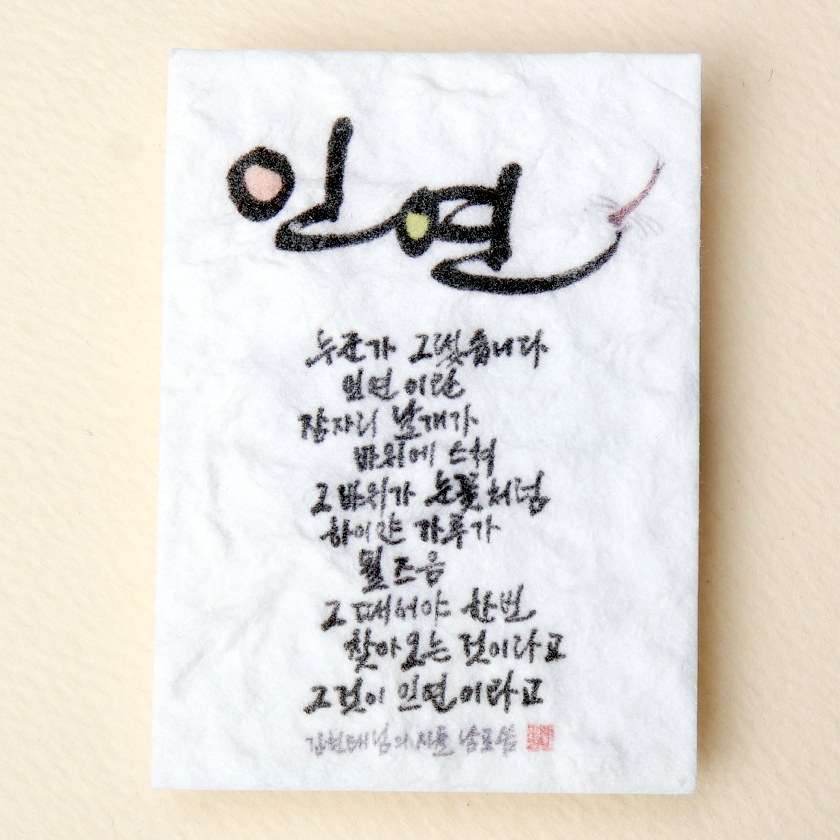 인연
누군가 그랬습니다
인연이란
잠자리 날개가
바위에 스쳐
그 바위가 눈꽃처럼
하이얀 가루가
될 즈음
그때서야 한번
찾아오는 것이라고
그것이 인연이라고
김현태님의 시를